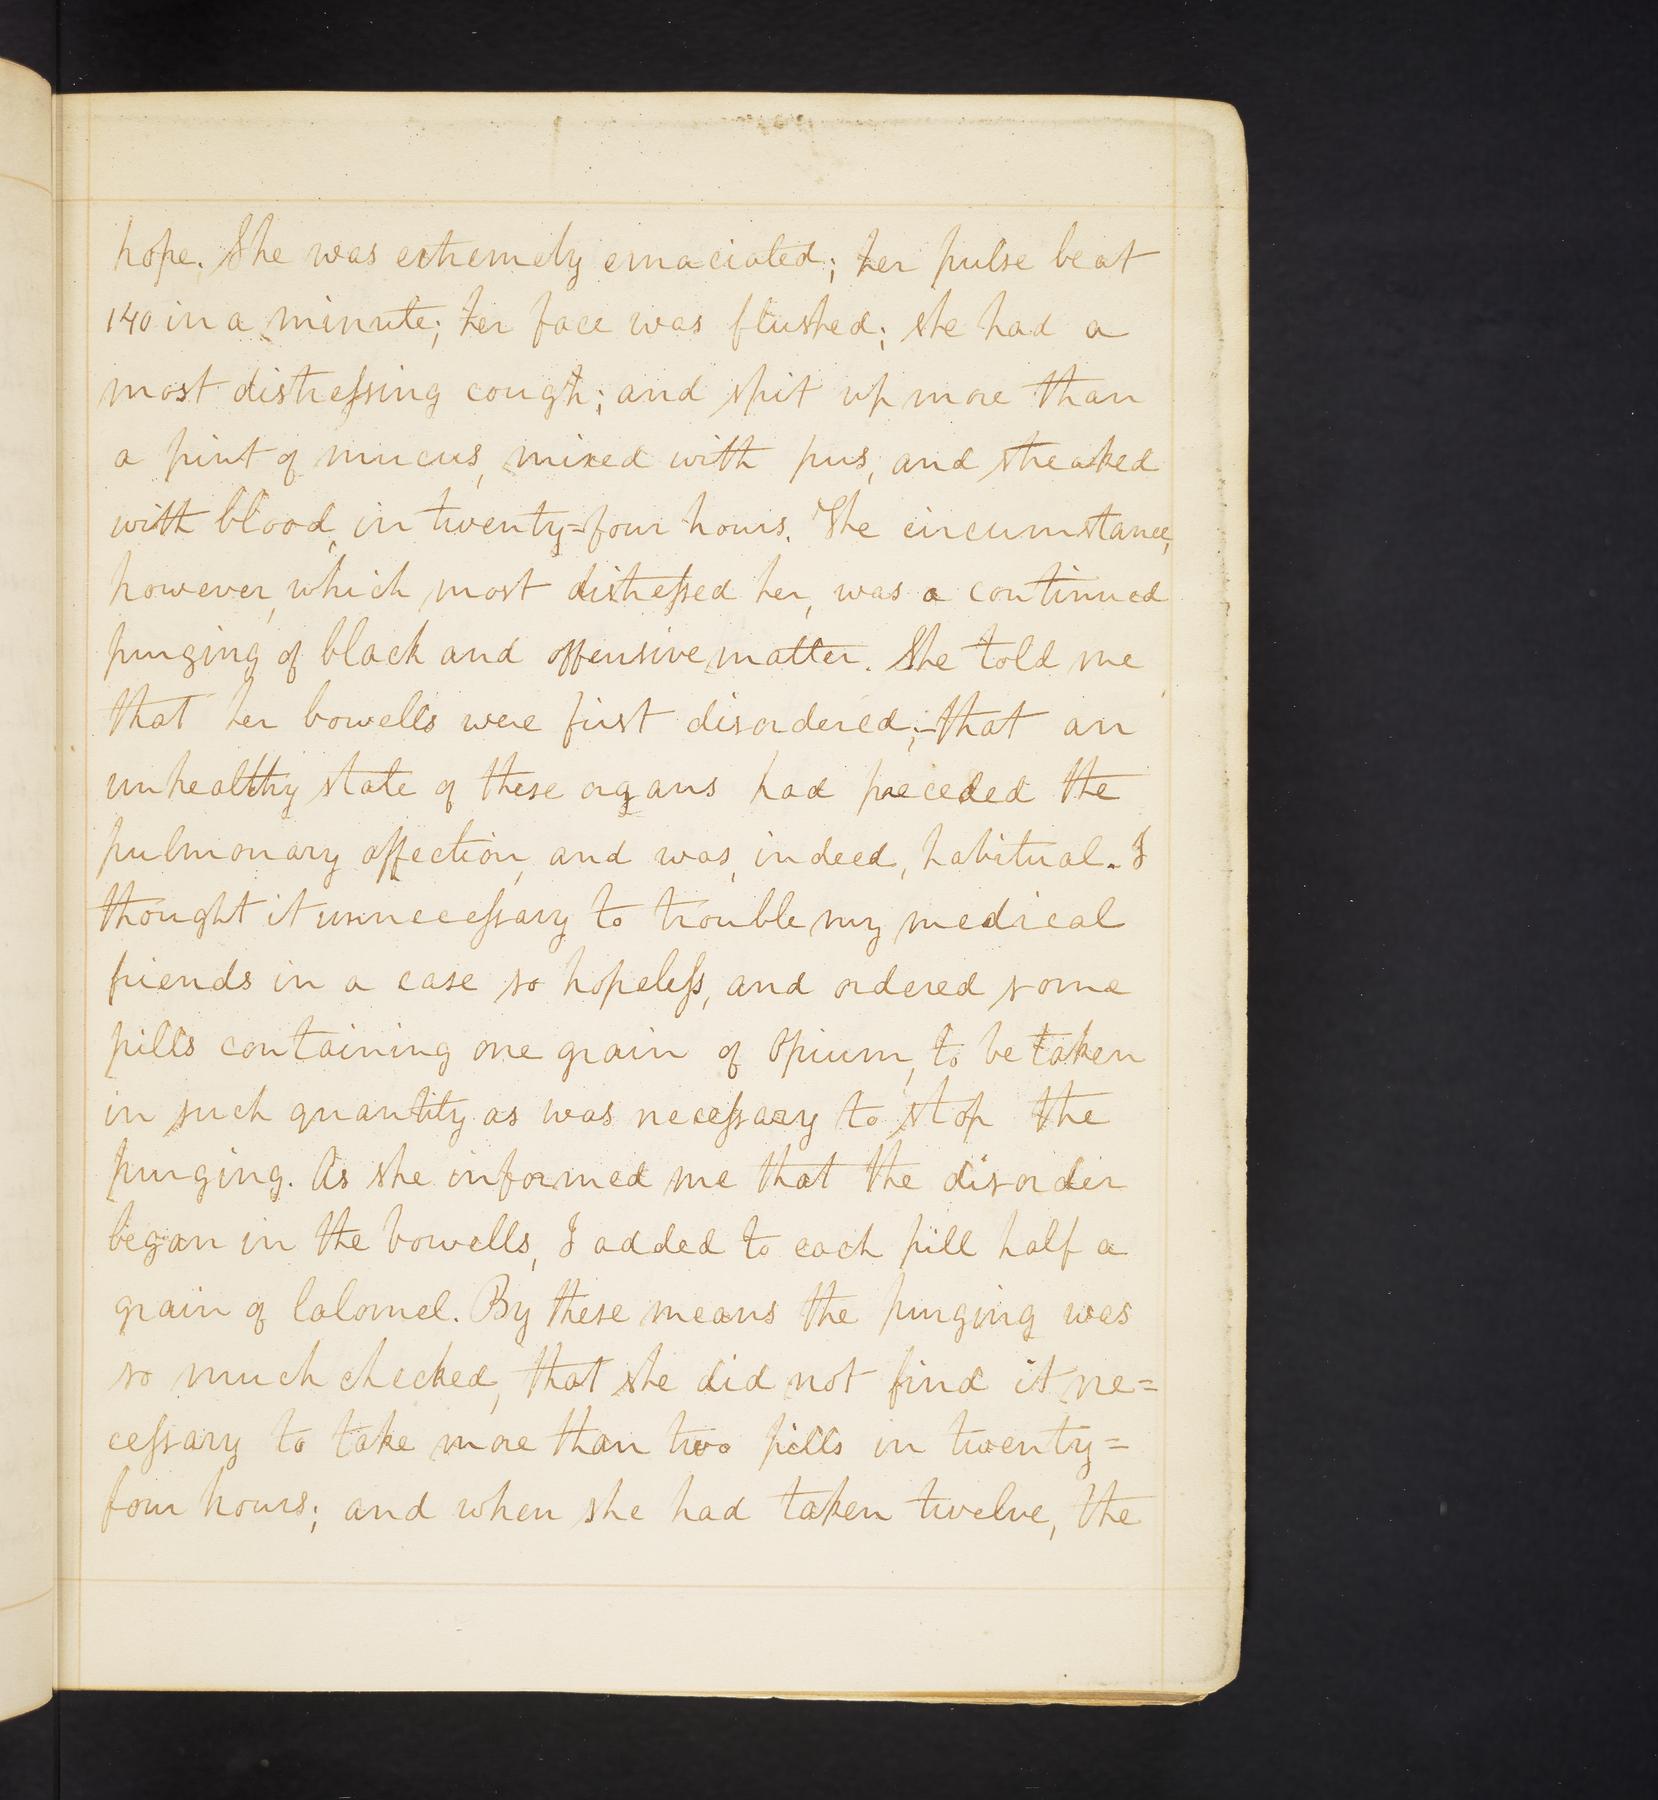 hope. She was extremely emaciated; her pulse beat
140 in a minute; her face was flushed; she had a
most distreſsing cough; and spit up more than
a pint of mucus, mixed with pus, and streaked
with blood, in twenty=four hours. The circumstance,
however, which most distreſsed her, was a continued
purging of black and offensive matter. She told me
that her bowells were first disordered;-that an
unhealthy state of these organs had preceded the
pulmonary affection, and was, indeed, habitual. I
thought it unneceſsary to trouble my medical
friends in a case so hopeleſs, and ordered some
pills containing one grain of Opium, to be taken
in such quantity as was neceſsary to stop the
purging. As she informed me that the disorder
began in the bowells, I added to each pill half a
grain of Calomel. By these means the purging was
so much checked, that she did not find it ne=
ceſsary to take more than two pills in twenty=
four hours; and when she had taken twelve, the